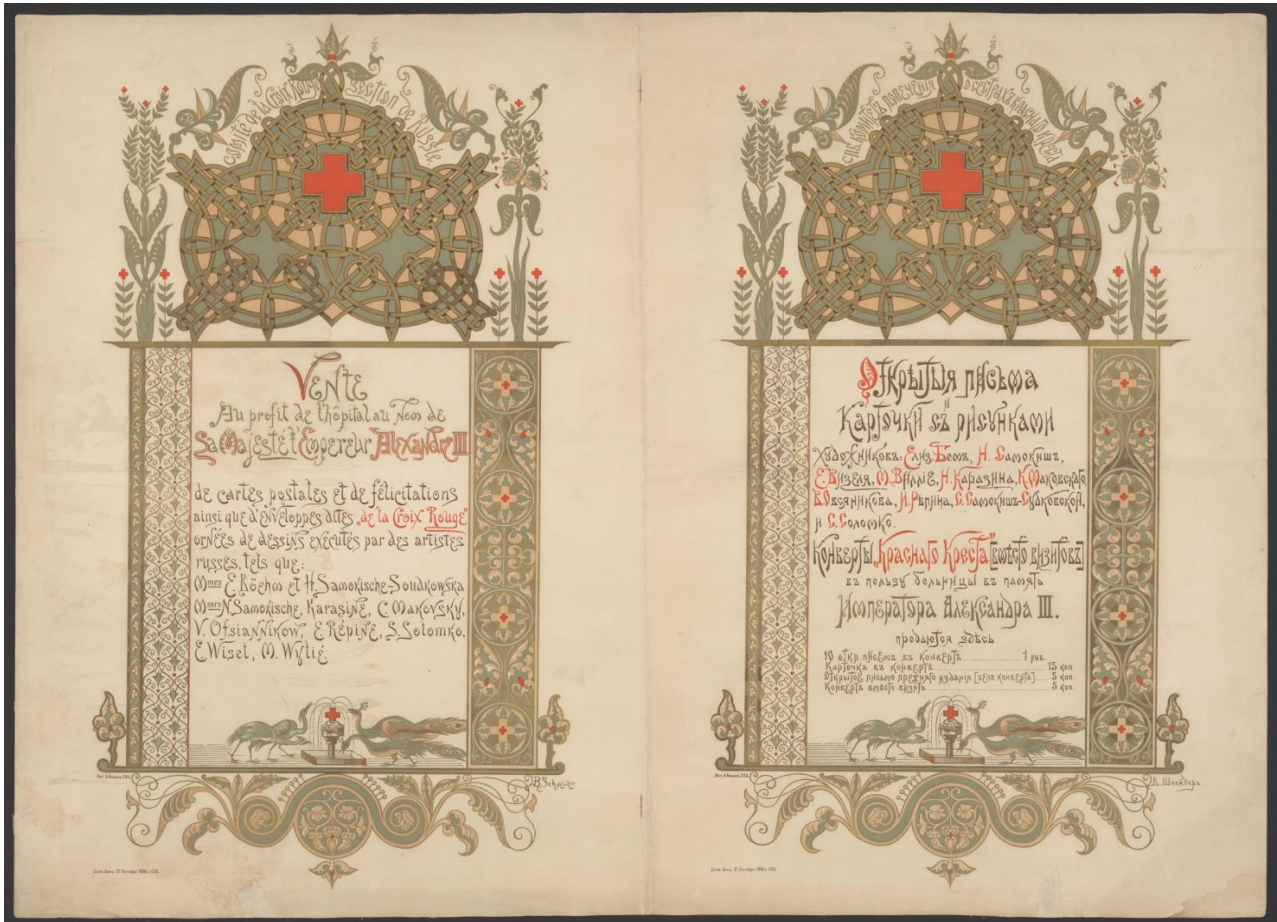 Comité de la Croix Rouge section de Russie
VENTE
Au profit de l'hôpital au Nom de
Sa Majesté l'Empereur Alexandre III
de cartes postales et de félicitations
ainsi que d'enveloppes dites „de la Croix Rouge"
ornées de dessins exécutés par des artistes
russes, tels que:
Mmes E. Boehm et H. Samokische-Soudkowska
Mours N. Samokische, Karasine, C. Makovsky,
V. Ofsiannikow, E. Répine, S. Solomko,
E. Wisel, M. Wylié
R. Schneider
СПБ. Комитетъ попеченія о сестрахъ краснаго креста
Открытыя письма
и
Карточки съ рисунками
Художниковъ: Елиз. Бемъ, Н. Самокишъ,
Е. Визеля, М. Виллiе, Н. Каразина, К. Маковскаго,
В. Овсянникова, И. Рѣпина, Е. Самокишъ-Судковской,
и С. Соломко.
Конверты „Краснаго Креста" [вмѣсто визитовъ]
въ пользу больницы въ память
Императора Александра III.
продаются здѣсь
10 откр. писемъ въ конвертѣ 1 руб.
Карточка въ конвертѣ 15 коп.
Открытое письмо прежняго изданія [безъ конверта] 5 коп.
Конвертъ вмѣсто визить 5 коп.
К. Шнейдеръ.